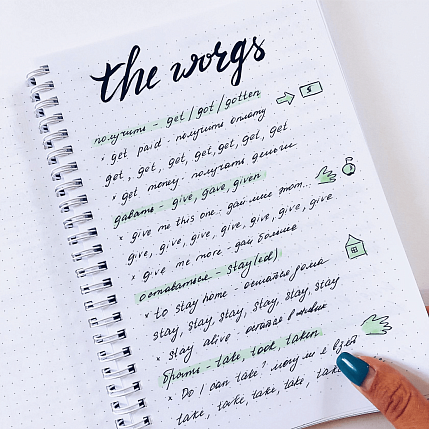 the worgs
получить - get / got / gotten
* get paid - получить оплату
got, got, get, get, get, get
* get money - получать деньги
давать - give, gave, given
* give me this one - дай мне этот...
give, give, give, give, give, give, give
* give me more - дай больше
оставаться - stay(ed)
* to stay home - остаться дома
stay, stay, stay, stay, stay, stay
* stay alive - остаться в живых
брать - take, took, taken
* Do I can take? могу ли я взят
take, take, take, take, take